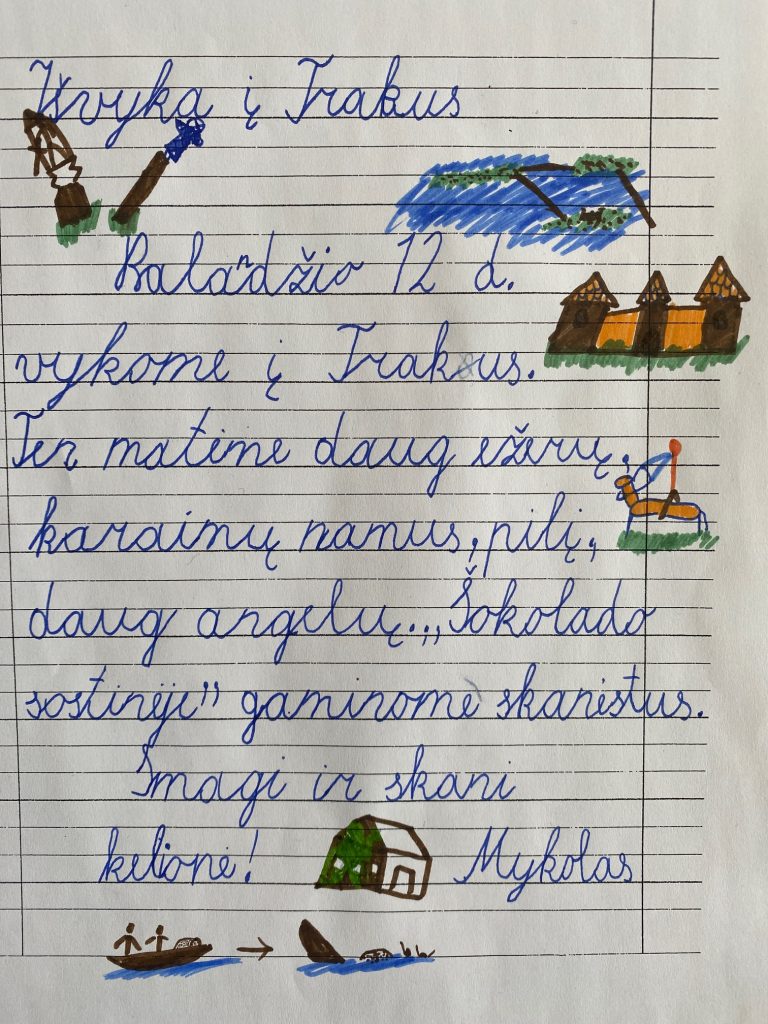 Išvyka į Trakus
Balandžio 12 d.
vykome į Trakus.
Ten matėme daug ežerų,
karaimų namus, pilį,
daug angelų. „Šokolado
sostinėje” gaminome skanėstus.
Smagi ir skani
kelionė! Mykolas